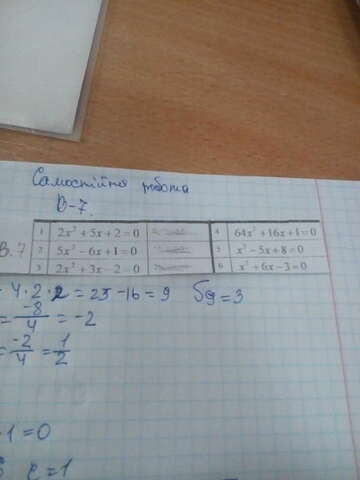 Самостійна робота
В-7.
В.7
1 2x² + 5x + 2 = 0 4 64x² + 16x + 1 = 0
2 5x² − 6x + 1 = 0 5 x² − 5x + 8 = 0
3 2x² + 3x − 2 = 0 6 x² + 6x − 3 = 0
- 4·2·2 = 25 - 16 = 9 √9 = 3
= -8/4 = -2
= -2/4 = 1/2
·1 = 0
c = 1